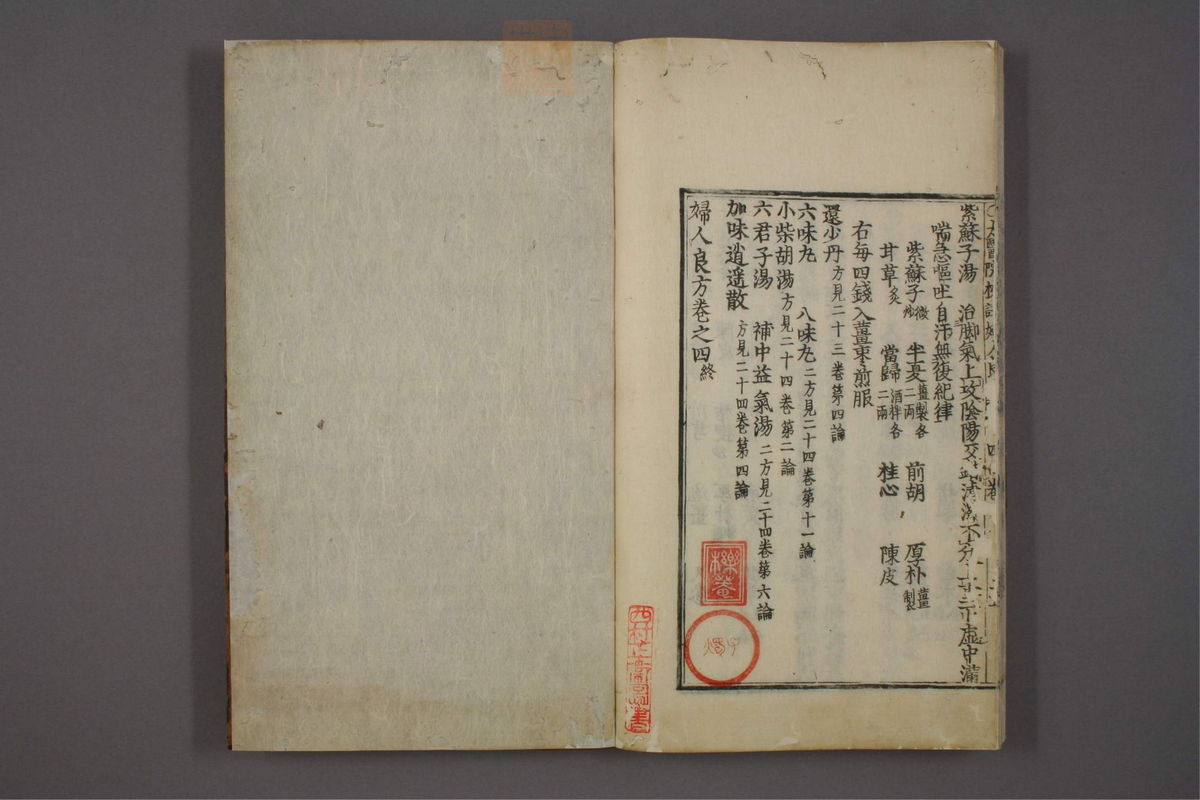 紫蘇子湯 治脚氣上攻陰陽交 清濁不分 虛中滿
喘急嘔吐自汗無復紀律
紫蘇子微炒 半夏薑製各二両 前胡 厚朴薑製
甘草炙 當歸酒拌各二両 桂心 陳皮
右每四錢入薑棗煎服
還少丹方見二十三卷第四論
六味丸 八味丸二方見二十四卷第十一論
小柴胡湯方見二十四卷第二論
六君子湯 補中益氣湯二方見二十四卷第六論
加味逍遥散方見二十四卷第四論
婦人良方卷之四終
櫟菴